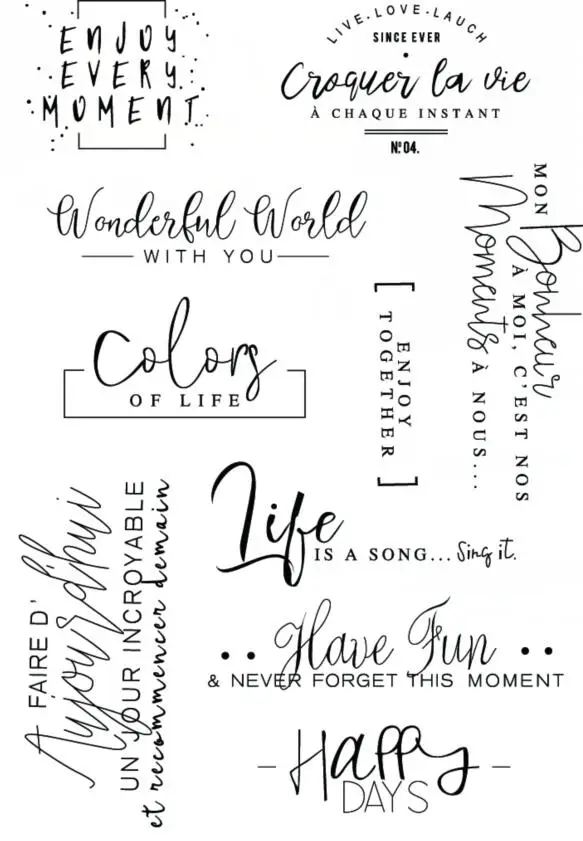 ENJOY
EVERY
MOMENT
LIVE·LOVE·LAUCH
SINCE EVER
Croquer la vie
À CHAQUE INSTANT
Nº04.
Wonderful World
WITH YOU
MON Bonheur
À MOI, C'EST NOS
Moments À NOUS...
ENJOY
TOGETHER
Colors
OF LIFE
Life
IS A SONG... Sing it.
FAIRE D'
Aujourd'hui
UN JOUR INCROYABLE
et recommencer demain
Have Fun
& NEVER FORGET THIS MOMENT
Happy
DAYS